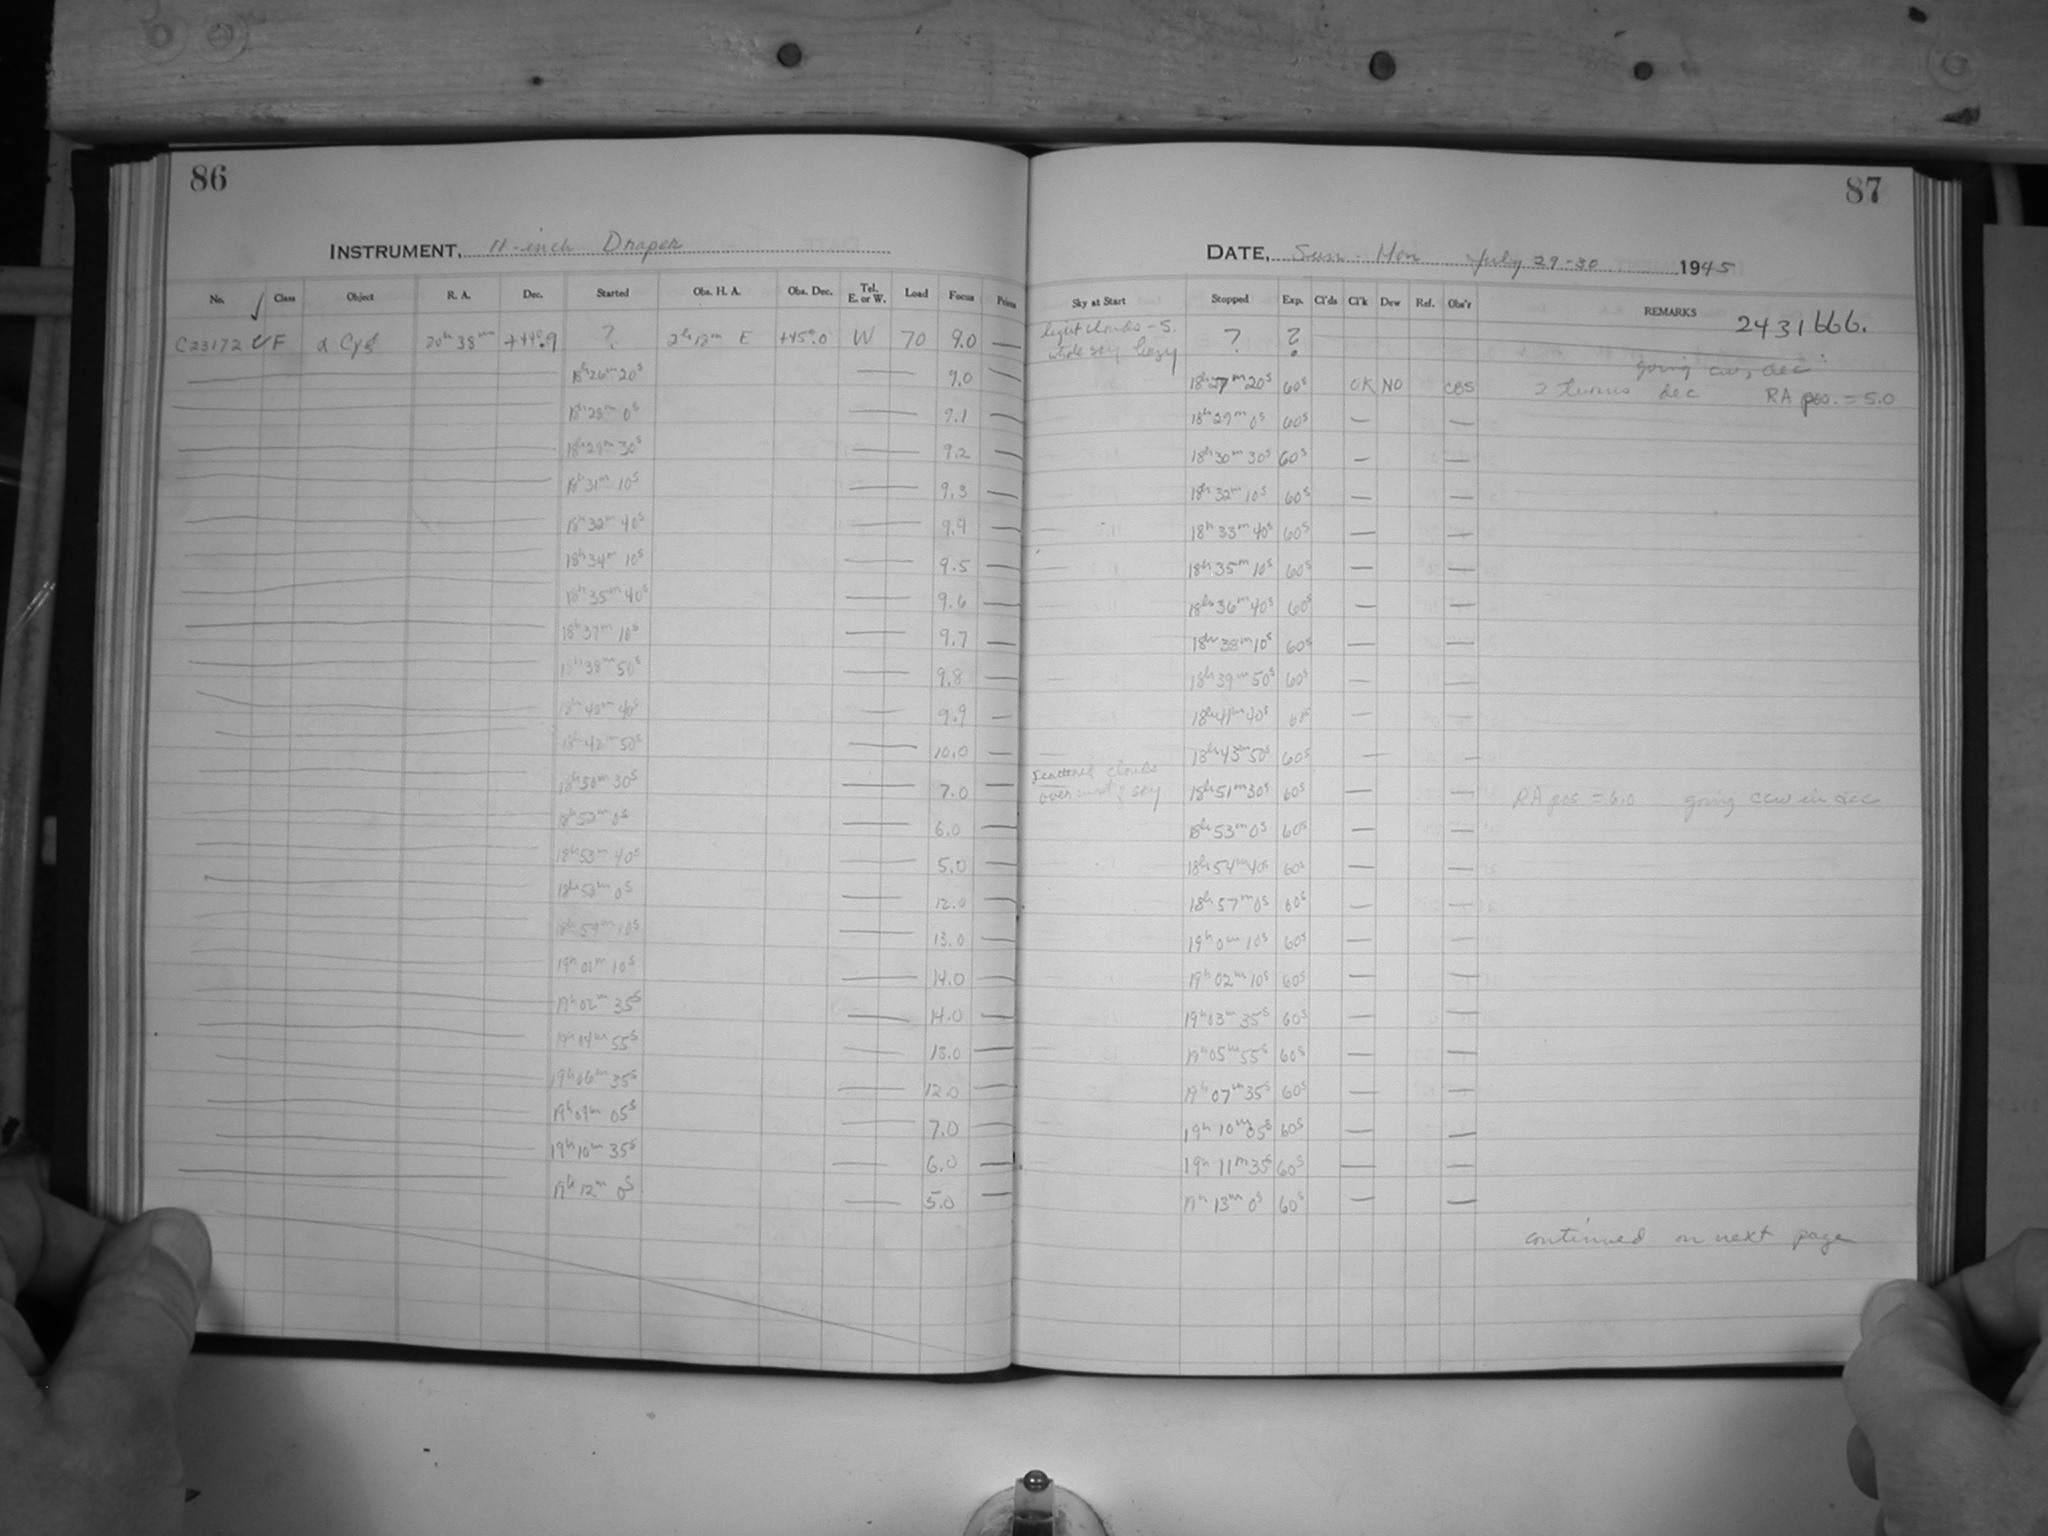 86
INSTRUMENT, 11-inch Draper
No. ✓ Class Object R. A. Dec. Started Obs. H. A. Obs. Dec. Tel. E. or W. Load Focus Prism
C23172 F α Cyg 20h 38m +44°.9 ? 2h 12m E +45°.0 W 70 9.0 —
18h 26m 20s — 9.0 —
18h 28m 0s — 9.1 —
18h 29m 30s — 9.2 —
18h 31m 10s — 9.3 —
18h 32m 40s — 9.4 —
18h 34m 10s — 9.5 —
18h 35m 40s — 9.6 —
18h 37m 10s — 9.7 —
18h 38m 50s — 9.8 —
18h 40m 40s — 9.9 —
18h 42m 50s — 10.0 —
18h 50m 30s — 7.0 —
18h 52m 0s — 6.0 —
18h 53m 40s — 5.0 —
18h 56m 0s — 12.0 —
18h 59m 10s — 13.0 —
19h 01m 10s — 14.0 —
19h 02m 35s — 14.0 —
19h 04m 55s — 13.0 —
19h 06m 35s — 12.0 —
19h 09m 05s — 7.0 —
19h 10m 35s — 6.0 —
19h 12m 0s — 5.0 —
87
DATE, Sun - Mon July 29-30 1945
Sky at Start Stopped Exp. Cl'ds Cl'k Dew Ref. Obs'r REMARKS 2431666.
light clouds - S. ? ?
whole sky hazy
going cw, dec
18h 27m 20s 60s OK NO CBS 2 turns dec RA pos. = 5.0
18h 29m 0s 60s — —
18h 30m 30s 60s — —
18h 32m 10s 60s — —
18h 33m 40s 60s — —
18h 35m 10s 60s — —
18h 36m 40s 60s — —
18h 38m 10s 60s — —
18h 39m 50s 60s — —
18h 41m 40s 60s —
18h 43m 50s 60s — —
scattered clouds
over most of sky 18h 51m 30s 60s — — RA pos = 6.0 going ccw in dec
18h 53m 0s 60s — —
18h 54m 40s 60s — —
18h 57m 0s 60s — —
19h 0m 10s 60s — —
19h 02m 10s 60s — —
19h 03m 35s 60s — —
19h 05m 55s 60s — —
19h 07m 35s 60s — —
19h 10m 05s 60s — —
19h 11m 35s 60s — —
19h 13m 0s 60s — —
continued on next page